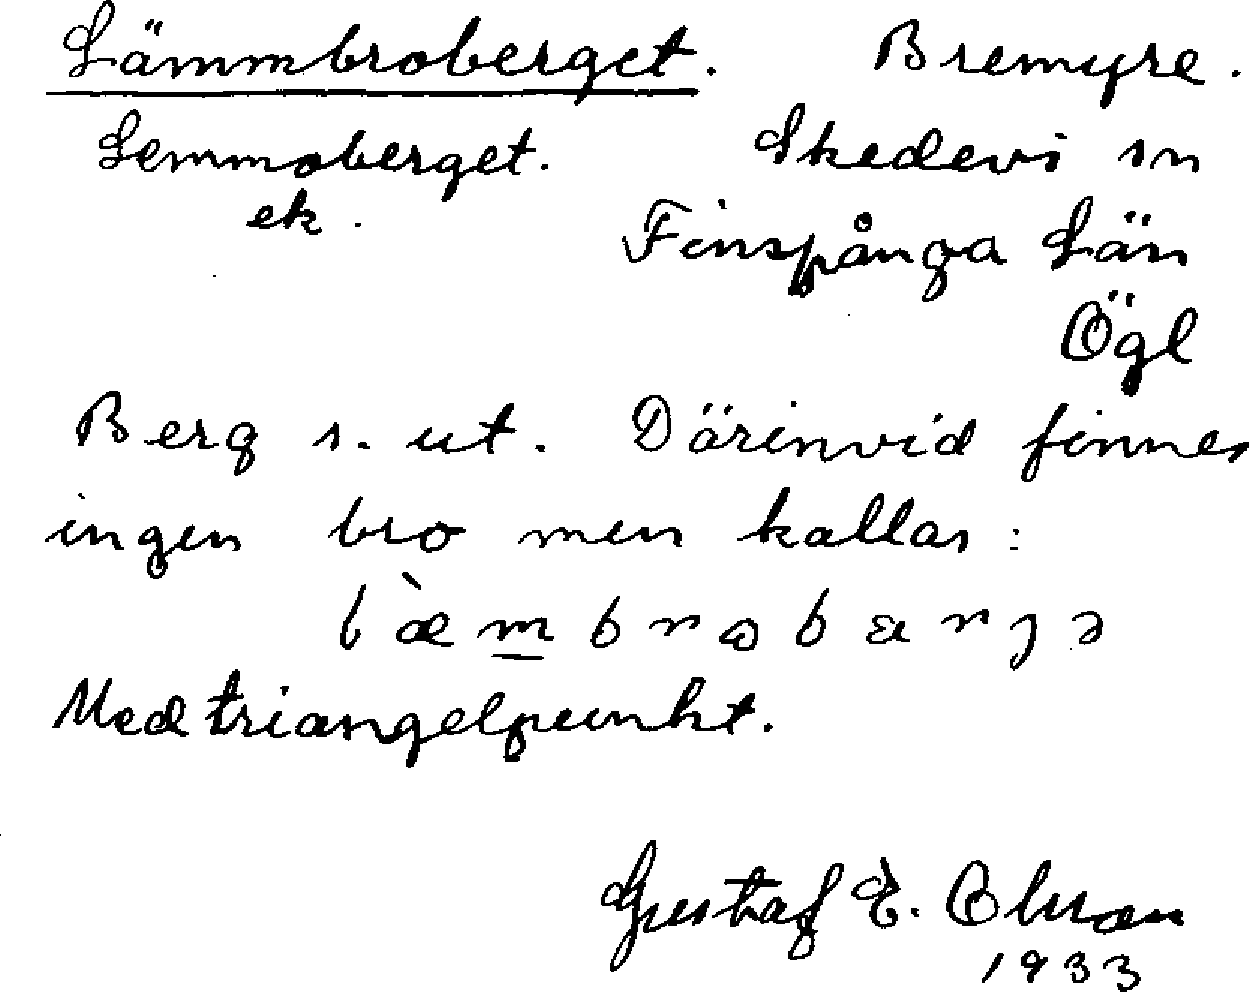 Lämmbroberget. Bremyre.
Lemmoberget. Skedevi sn
ek. Finspånga Län
Ögl
Berg s. ut. Därinvid finnes
ingen bro men kallas:
Med triangelpunkt.
Gustaf E. Olsson
1933